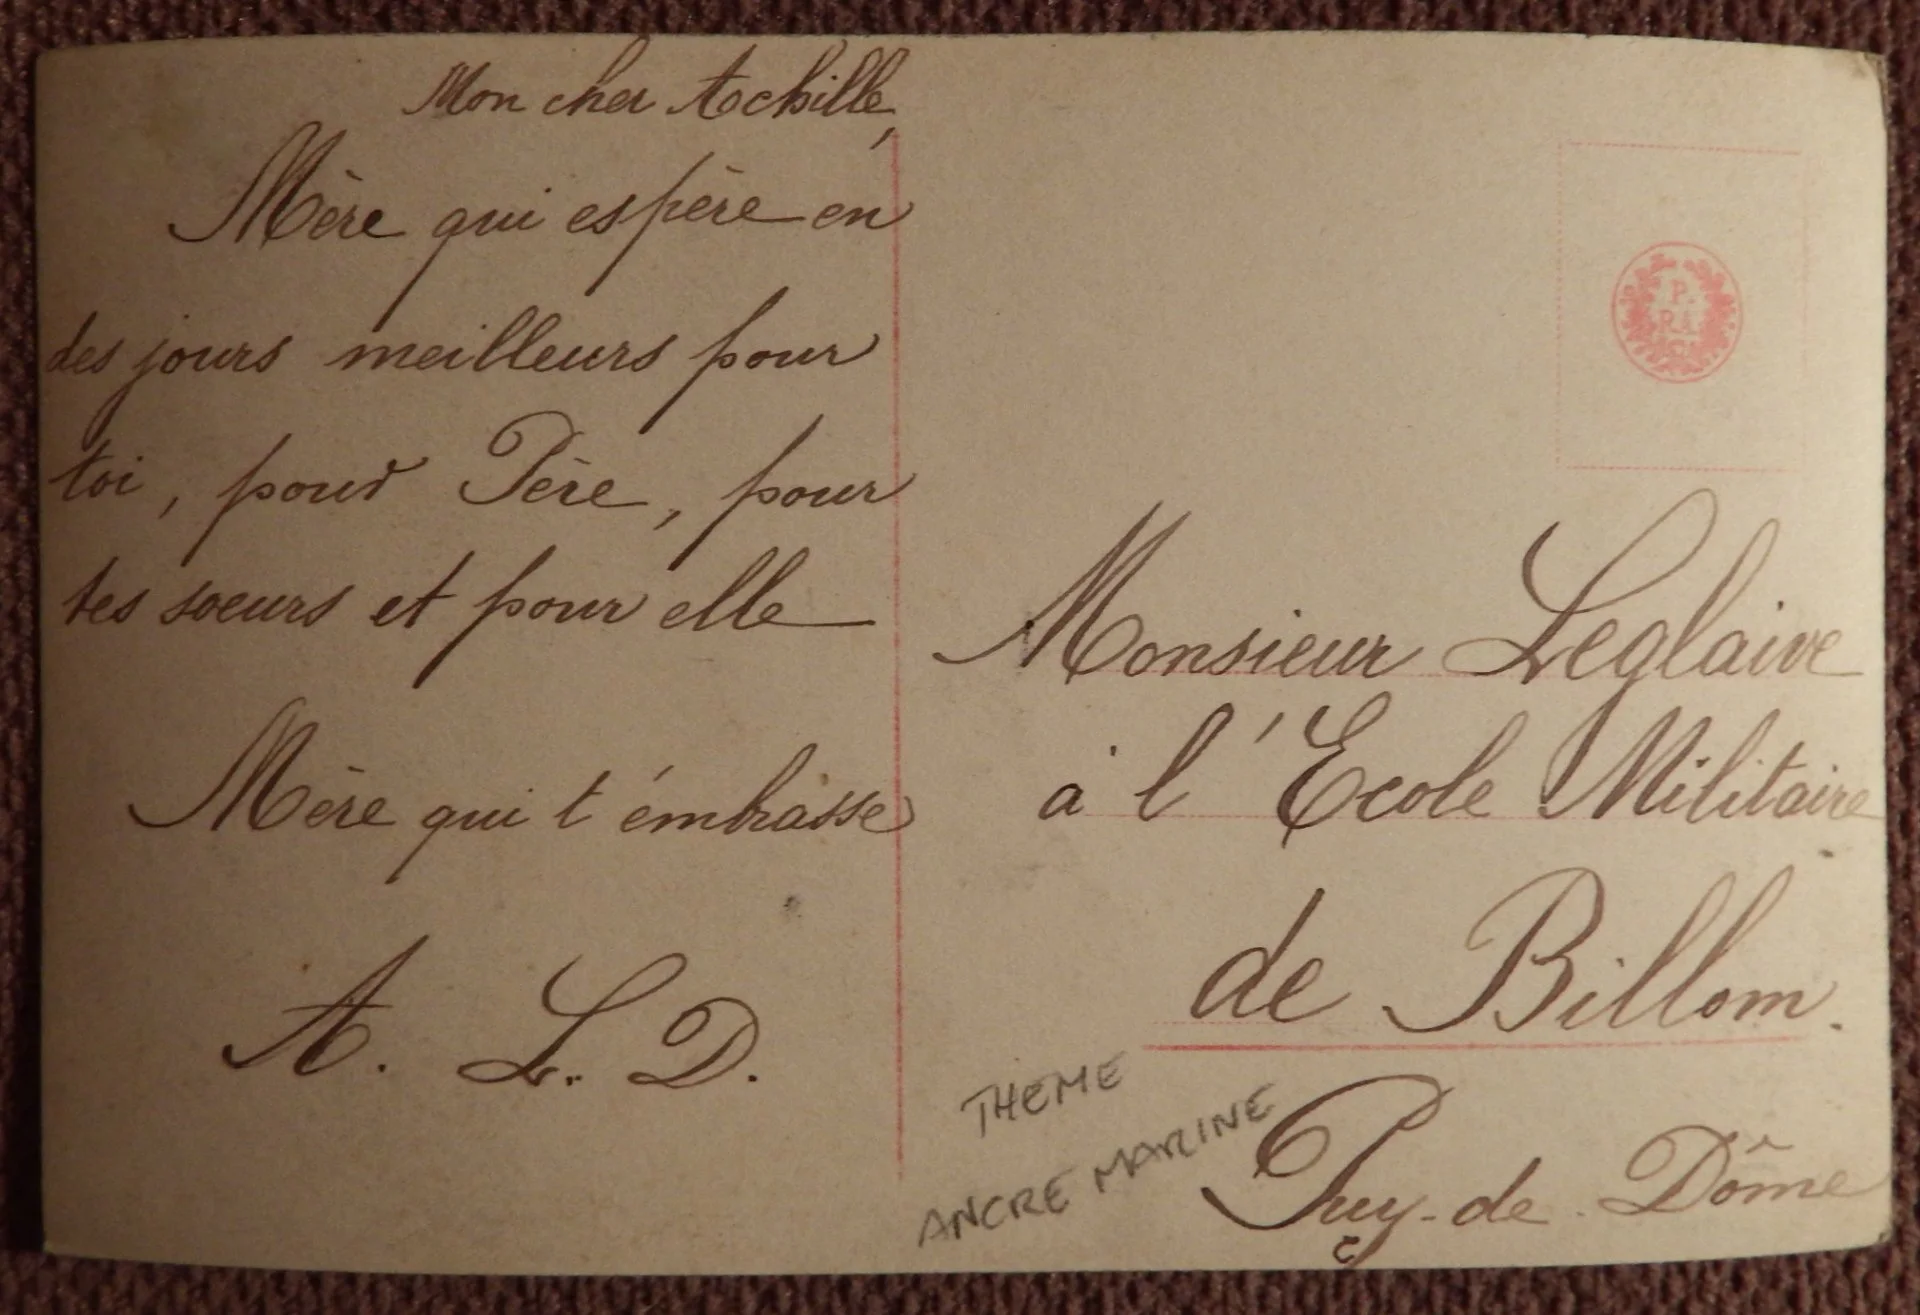 Mon cher Achille,
Mère qui espère en
des jours meilleurs pour
toi, pour Père, pour
tes soeurs et pour elle
Mère qui t'embrasse
A. L. D.
P.
RA
Monsieur Leglaive
à l'Ecole Militaire
de Billom.
Puy-de-Dôme
THEME
ANCRE MARINE